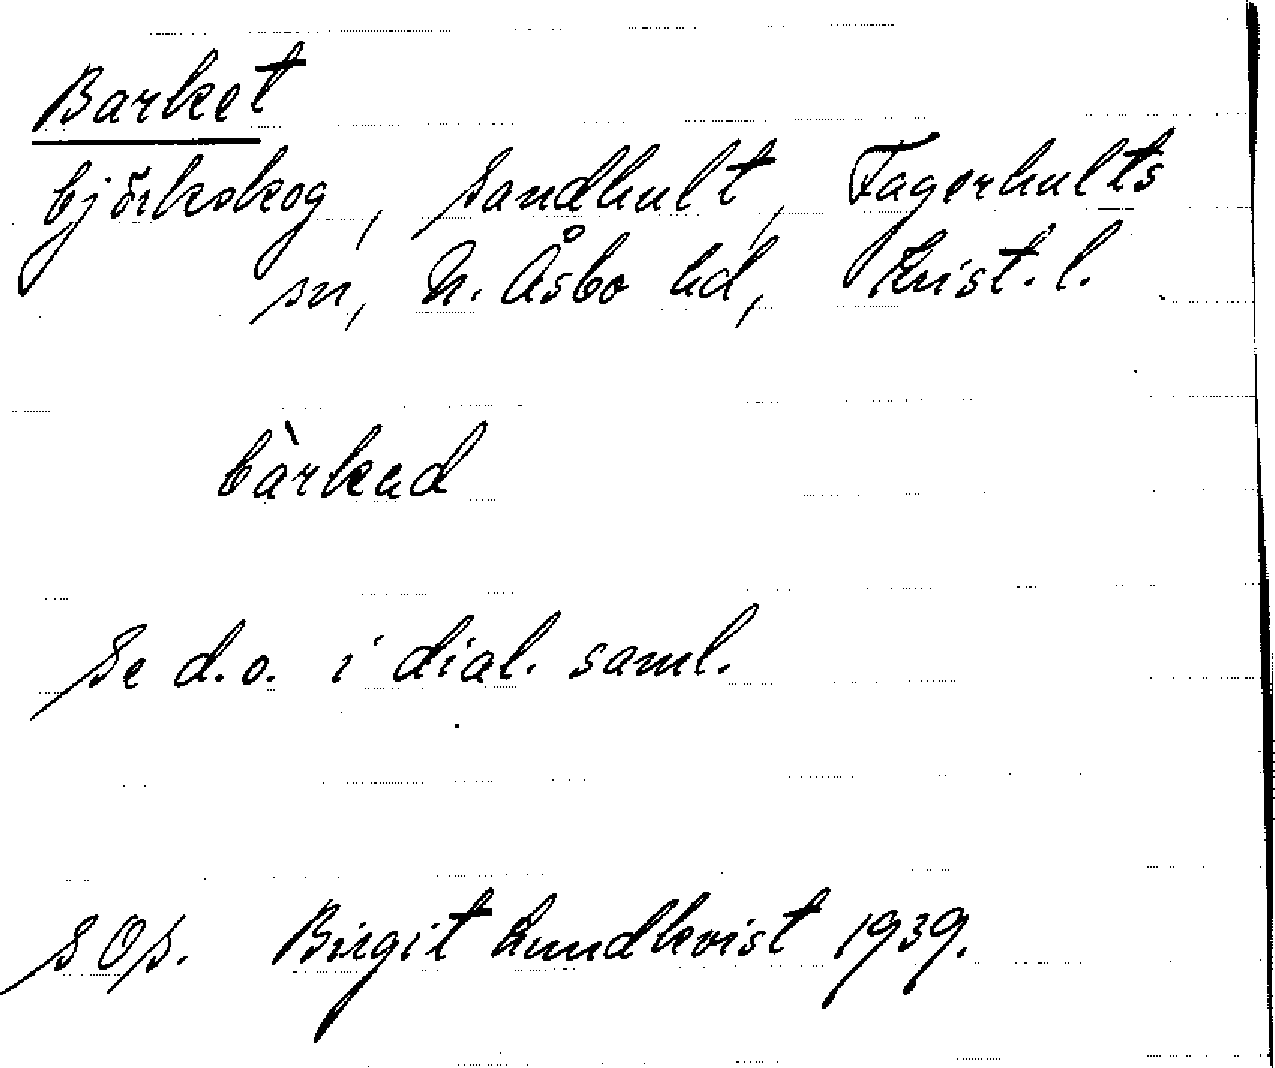 Barket
björkskog, Sandhult, Fagerhults
sn, N. Åsbo hd, Krist. l.
bàrkad
Se d.o. i dial. saml.
Birgit Lundkvist 1939.